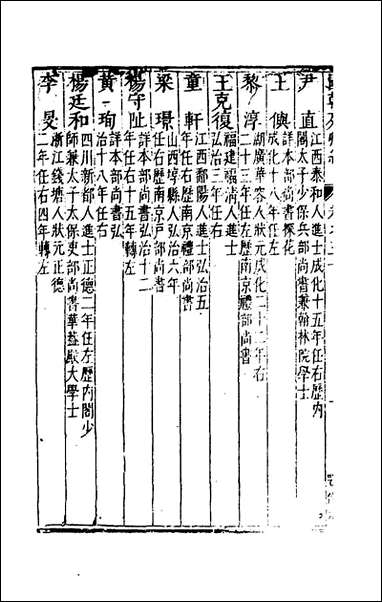 尹直 江西泰和人進士成化十五年任右歷內
閣太子少保兵部尚書兼翰林院學士
王㒜 詳本部尚書探花
成化十八年任左
黎淳 湖廣華容人狀元成化二十二年右
二十三年任左歷南京禮部尚書
王克復 福建福清人進士
弘治三年任右
童軒 江西鄱陽人進士弘治五
年任右歷南京禮部尚書
梁璟 山西崞縣人弘治六年
任右歷南京戶部尚書
楊守阯 詳本部尚書弘治十二
年任右十五年轉左
黃珣 詳本部尚書弘
治十八年任右
楊廷和 四川新都人進士正德二年任左歷內閣少
師兼太子太保吏部尚書華蓋殿大學士
李旻 浙江錢塘人狀元正德
二年任右四年轉左